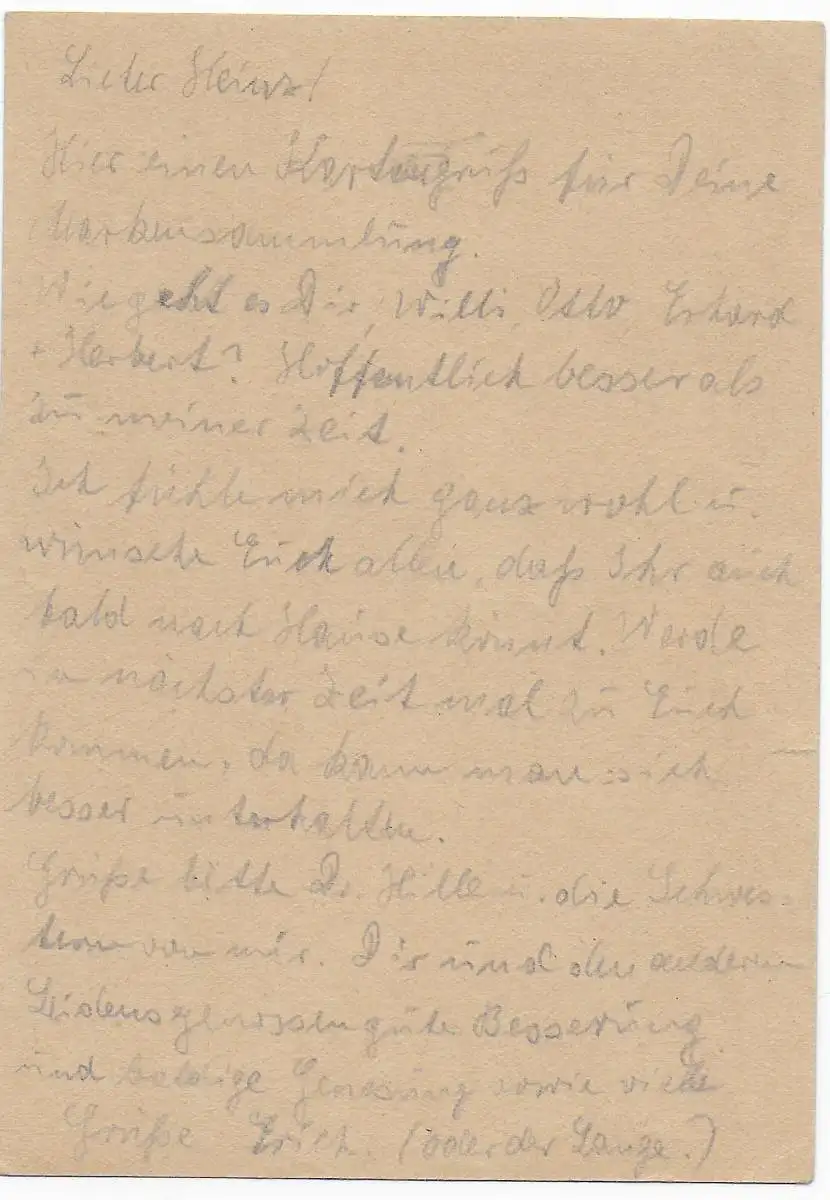 Lieber Heinz!
Hier einen Kartengruß für Deine
Markensammlung.
Wie geht es Dir, Willi, Otto, Erhard
+ Herbert? Hoffentlich besser als
zu meiner Zeit.
Ich fühle mich ganz wohl u.
wünsche Euch allen, daß Ihr auch
bald nach Hause könnt. Werde
in nächster Zeit mal zu Euch
kommen, da kann man sich
besser unterhalten.
Grüße bitte Dr. Hille u. die Schwes-
tern von mir. Dir und den anderen
Leidensgenossen gute Besserung
und baldige Genesung sowie viele
Grüße Erich. (oder der Lange.)